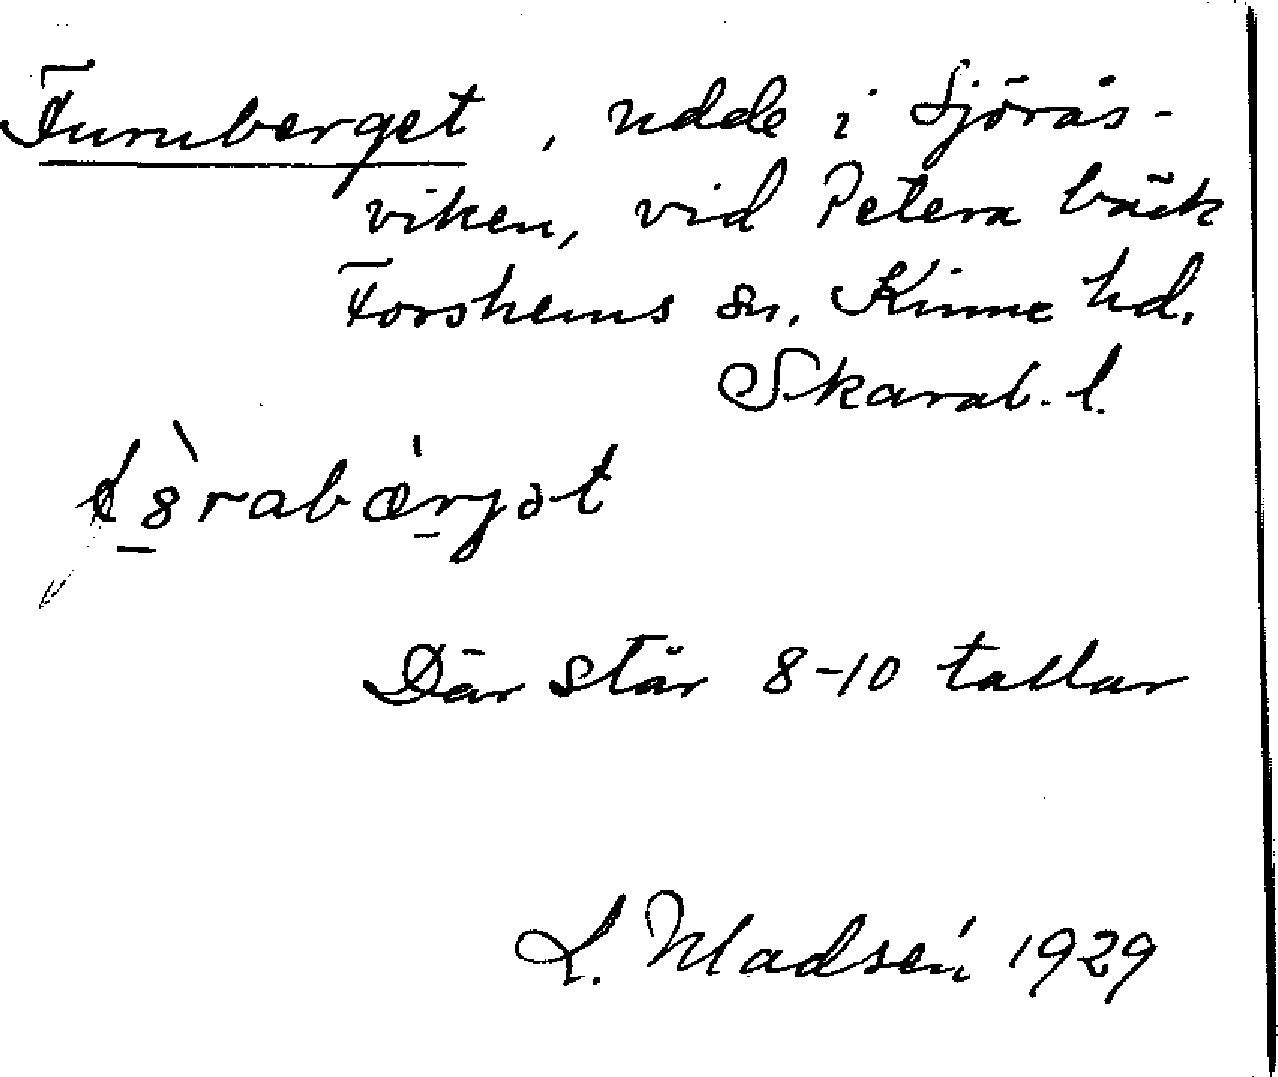 Furuberget, udde i Sjörås-
viken, vid Petera bäck
Forshems sn. Kinne hd.
Skarab. l.
Där står 8-10 tallar
L. Madsén 1929